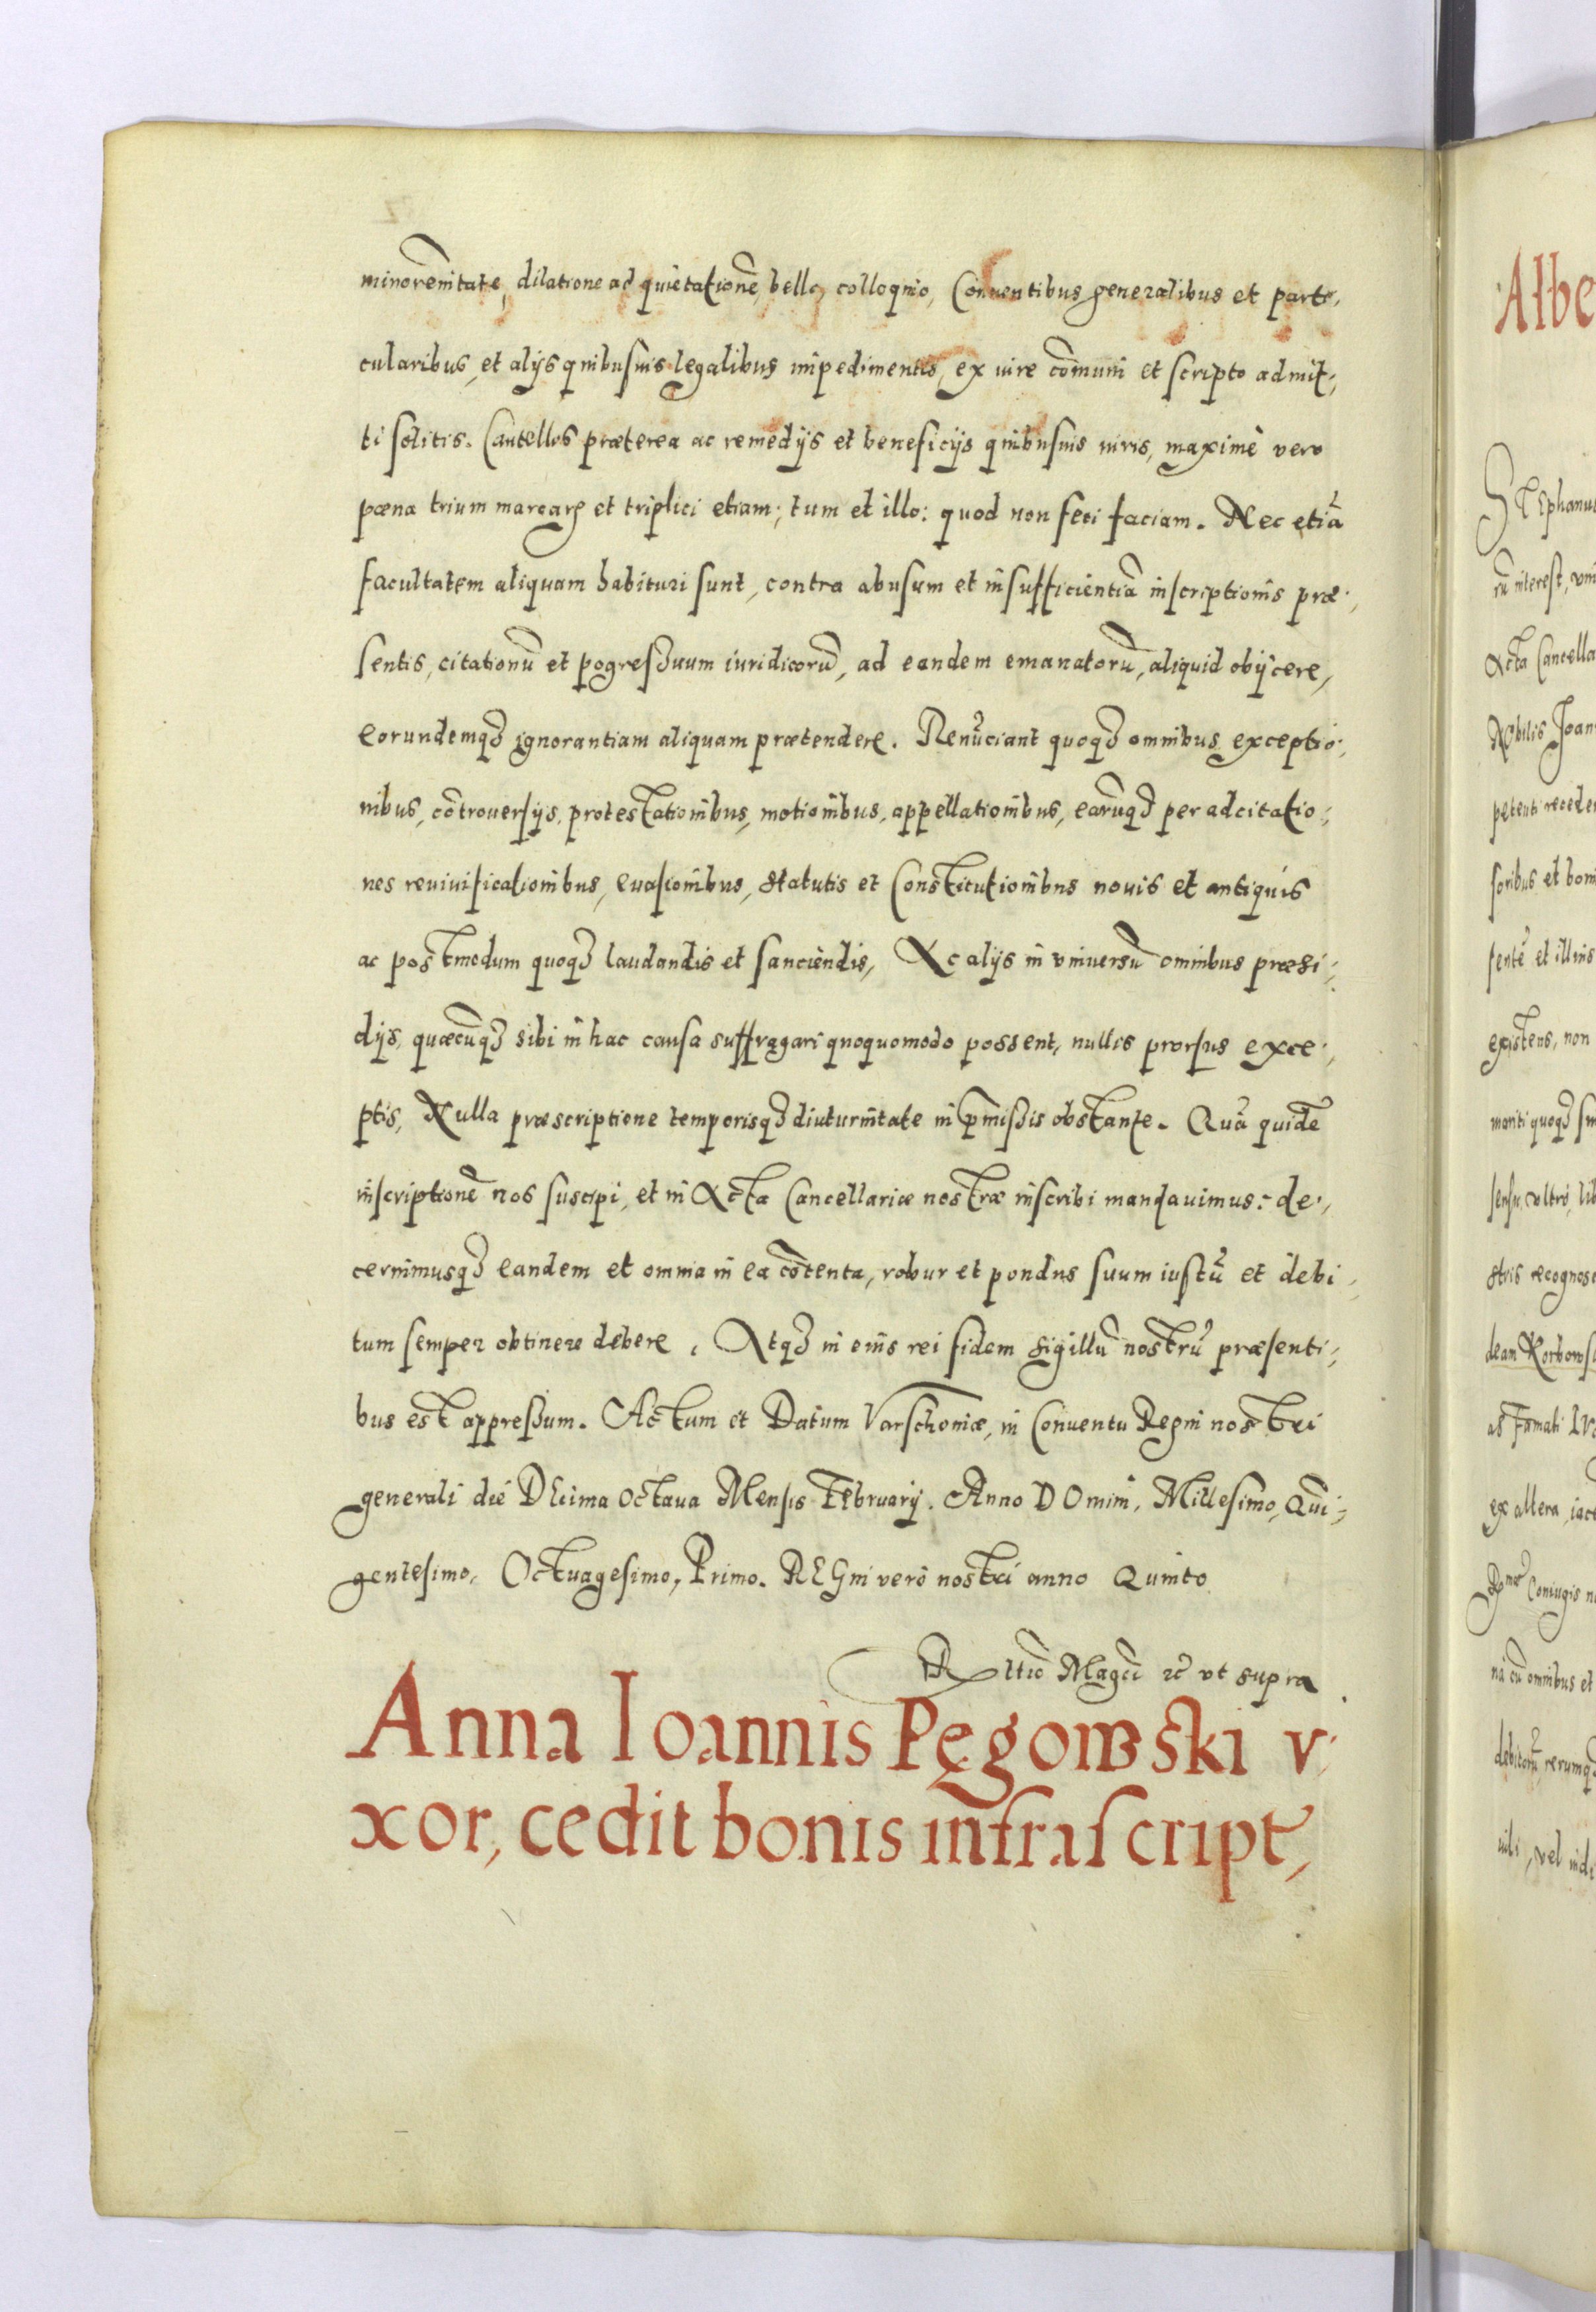 minorenitate, dilatione ad quietationē, bello, colloquio, Conuentibus generalibus et parti,
cularibus, et alijs quibusuis legalibus impedimentis, ex iure cōmuni et scripto admit,
ti solitis. Cautellis præterea ac remedijs et beneficijs quibusuis iuris, maximè vero
pœna trium marcarꝝ et triplici etiam; tum et illo: quod non feci faciam. Nec etiā
facultatem aliquam habituri sunt, contra abusum et insufficientiā inscriptionis præ,
sentis, citationū et pogreßuum iuridicorū, ad eandem emanatorū, aliquid obijcere,
eorundemqꝫ ignorantiam aliquam prætendere. Renūciant quoqꝫ omnibus exceptio,
nibus, cōtrouersijs, protestationibus, motionibus, appellationibus, earūqꝫ per adcitatio,
nes reuiuificationibus, euasionibus, statutis et Constitutionibus nouis et antiquis
ac postmodum quoqꝫ laudandis et sanciendis, Ac alijs in vniuersū omnibus præsi,
dijs, quæcūqꝫ sibi in hac causa suffragari quoquomodo possent, nullis prorsus exce,
ptis, Nulla præscriptione temporisqꝫ diuturnitate in p̄mißis obstante. Quā quidē
inscriptionē nos suscipi, et in Acta Cancellariæ nostræ inscribi mandauimus: de,
cernimusqꝫ eandem et omnia in ea cōtenta, robur et pondus suum iustū et debi,
tum semper obtinere debere. Atqꝫ in eius rei fidem sigillū nostrū præsenti,
bus est appreßum. Actum et Datum Varschouiæ, in Conuentu Regni nostri
generali die DEcima Octaua Mensis FEbruarij. Anno DOmini, Millesimo, Qui,
gentesimo, Octuagesimo, Primo. REGni verò nostri anno Quinto
Rltio Magci &c vt supra
Anna Ioannis Pęgowski v,
xor, cedit bonis infrascript,
Albe
STEphanus
interest, vni
Acta Cancella
Nobilis Joan
petenti recede
soribus et boni
sentē et illius
existens, non
mariti quoqꝫ su
sensu, vltrò, lib
stris recognos
deam Korbows
as Famati
ex altera, iac
Coniugis
na cū omnibus et
debitorū, rerumqꝫ
uili, vel